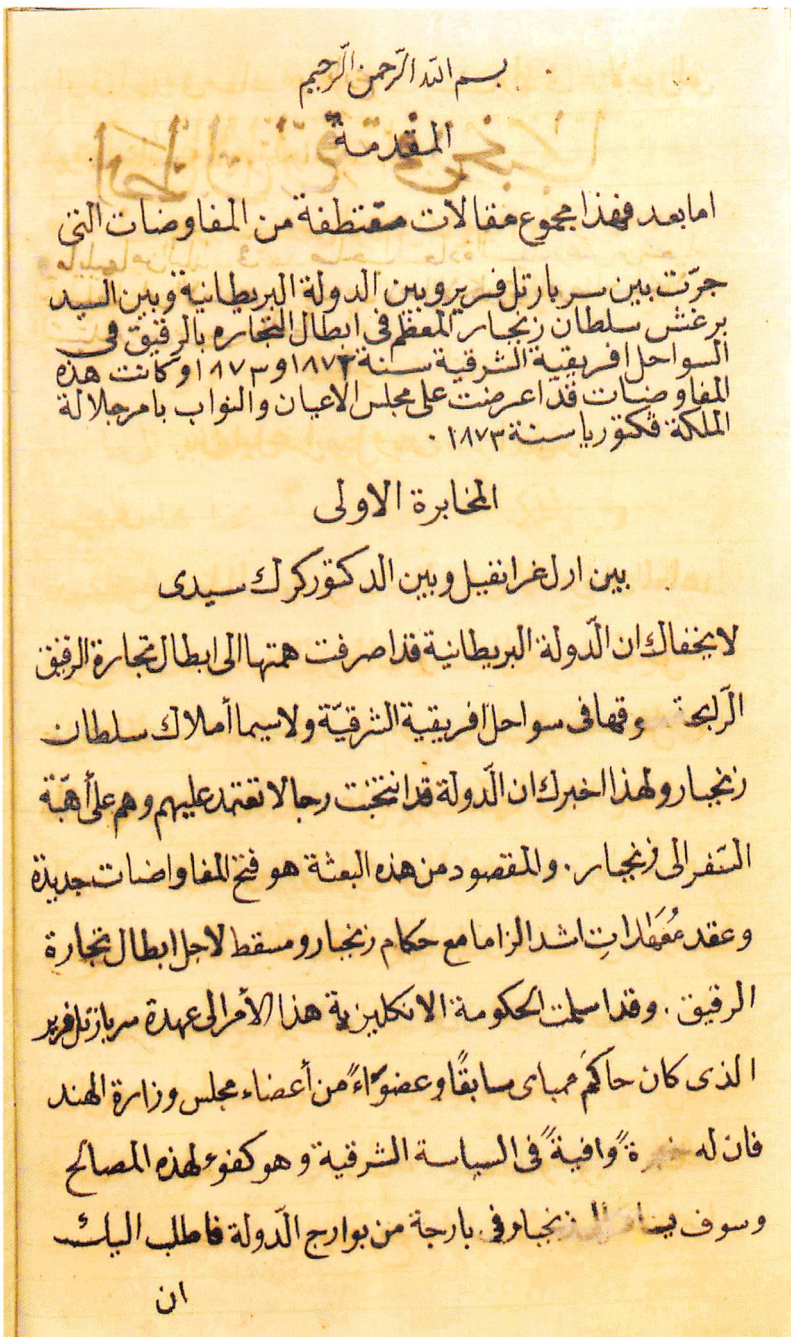 بسم الله الرّحمن الرّحيم
المقدمة
اما بعد فهذا مجموع مقالات مقتطفة من المفاوضات التى
جرّت بين سر بارتل فرير وبين الدولة البريطانية وبين السيد
برغش سلطان زنجبار المعظم فى ابطال التجاره بالرقيق فى
السواحل افريقية الشرقية سنة ١٨٧٢ و ١٨٧٣ وكانت هذه
المفاوضات قد اعرضت على مجلس الاعيان والنواب بامر جلالة
الملكة ڤكتوريا سنة ١٨٧٣ ٠
المخابرة الاولى
بين ارل غرانفيل وبين الدكتور كرك سيدى
لا يخفاك ان الّدولة البريطانية قد اصرفت همتها الى ابطال تجارة الرقيق
الرّابحة وقها فى سواحل افريقية الشرقيّة ولا سيما أملاك سلطان
زنجبار ولهذا اخبرك ان الّدولة قد انتخبت رجالا تعتمد عليهم وهم على أهبّة
السّفر الى زنجبار. والمقصود من هذه البعثة هو فتح المفاواضات جديدة
وعقد مُعَهَادَاتِ اشد الزاما مع حكام زنجبار ومسقط لاجل ابطال تجارة
الرقيق. وقد اسلمت الحكومة الانكليزية هذا الأمر الى عهدة سر بارتل فرير
الذى كان حاكمَ ممباى سابقًا وعضوًاءً من أعضاء مجلس وزارة الهند
فان له ةً وافيةً فى السياسة الشرقية وهو كفوء لهذه المصالح
وسوف زنجبار فى بارجة من بوارج الّدولة فاطلب اليك
ان